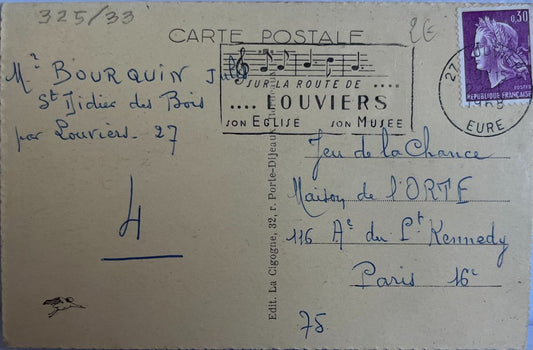 325/33
2€
CARTE POSTALE
Mr BOURQUIN Jules
St Didier des Bois
par Louviers - 27
4
SUR LA ROUTE DE ....
.... LOUVIERS
SON EGLISE SON MUSEE
27
EURE
0,30
POSTES
REPUBLIQUE FRANÇAISE
Edit. La Cigogne, 32, r. Porte-Dijeaux
Jeu de la Chance
Maison de l'ORTF
116 Ae du Pt Kennedy
Paris 16e
75